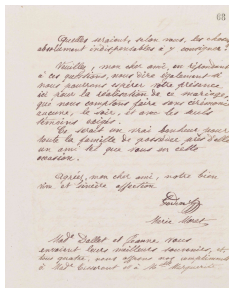 68
Quelles seraient, selon vous, les choses
absolument indispensables à y consigner?
Veuillez, mon cher ami, en répondant
à ces questions, nous dire également si
nous pourrions espérer votre présence
ici pour la réalisation de ce mariage,
que nous comptons faire sans cérémonie
aucune, le soir, et avec les seuls
témoins exigés.
Ce serait un vrai bonheur pour
toute la famille de posséder
un ami tel que vous en cette
occasion.
Agréez, mon cher ami, notre bien
vive et sincère affection.
Marie Moret
Mad. Dallet et Jeanne, vous
envoient leurs meilleurs souvenirs, et
tous quatre, nous offrons nos compliments
à Mad. et à